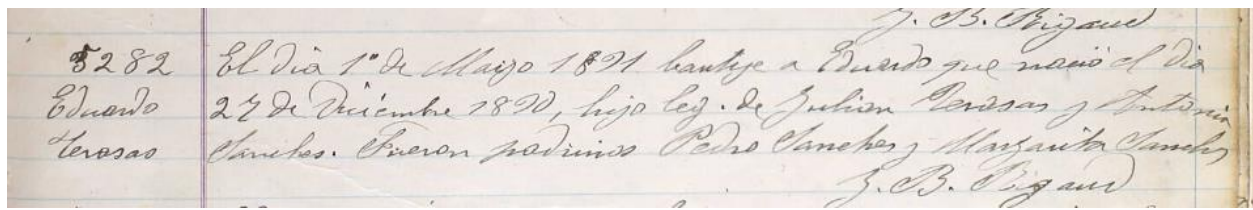 J. B. Rigaud
5282 El dia 1º de Marzo 1891 bautize a Eduardo que nació el dia
Eduardo 27 de Diciembre 1890, hijo leg. de Julian Terasas y Antonia
Terasas Sanches. Fueron padrinos Pedro Sanches y Margarita Sanches
J. B. Rigaud